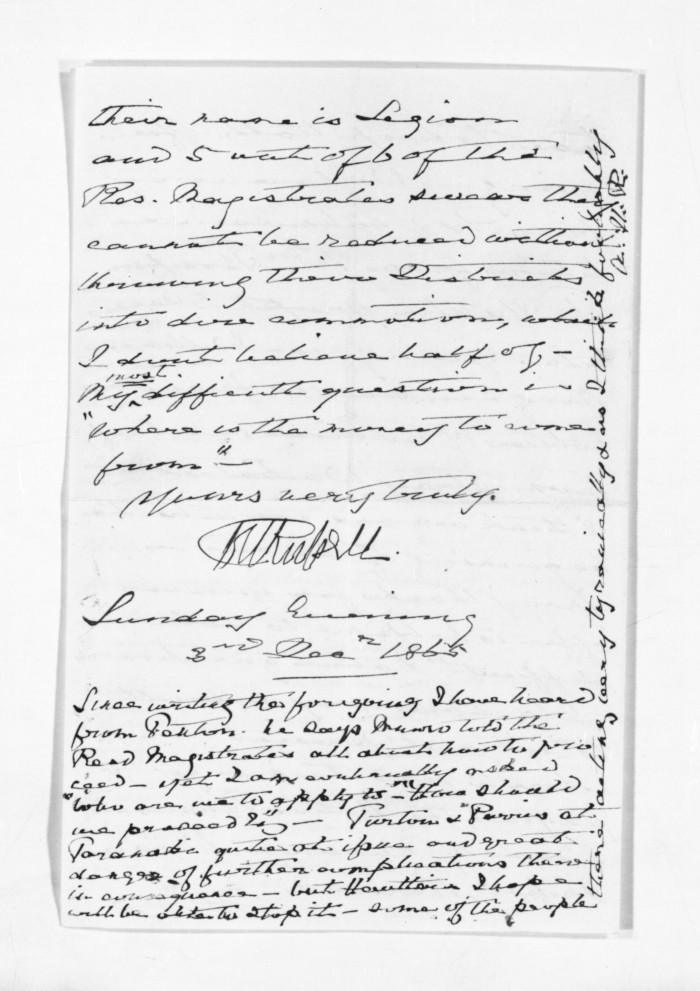 their name is Legion
and 5 out of 6 of the
Res. Magistrates swears they
cannot be reduced without
throwing their Districts
into dire commotion, which
I dont believe half of –
My most difficult question is
"Where is the money to come
from" –
Yours very truly.
Russell.
Sunday Evening
3rd Decr 1865
Since writing the foregoing I have heard
from Fenton. he says Munro told the
Resd Magistrates all about how to pro
ceed – yet I am continually asked
"Who are we to apply to" – "How should
we proceed?" – Turton & Parris at
Taranaki quite at issue and great
danger of further complications there
in consequence – but Haultain I hope
will be able to stop it – some of the people
there acting very tyranically & as I think